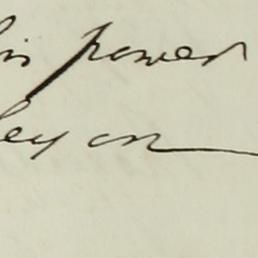 his power
ley on